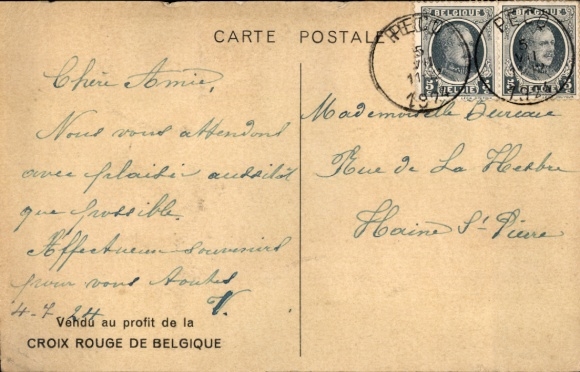 CARTE POSTALE
BELGIQUE BELGIQUE
PECQ PECQ
5 5
VII
11
1924 192
BELGIE BELGIE
Chère Amie,
Nous vous attendons
avec plaisir aussitôt
que possible.
Affectueux souvenirs
pour vous toutes
4-7 24 V.
Mademoiselle Dureau
Rue de La Hestre
Haine St Pierre
Vendu au profit de la
CROIX ROUGE DE BELGIQUE